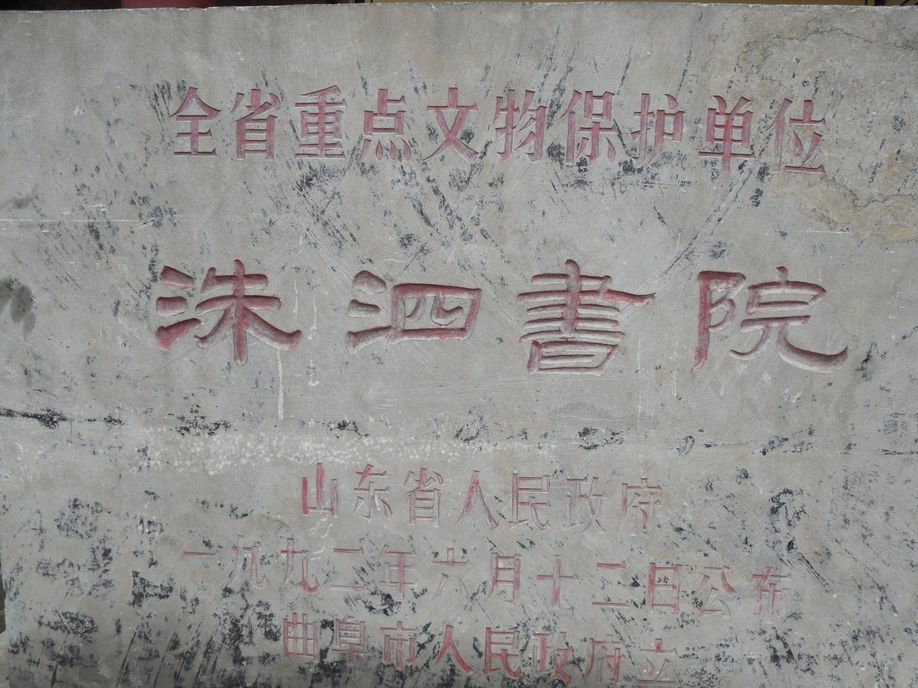 全省重点文物保护单位
洙泗書院
山东省人民政府
一九九二年六月十二日公布
曲阜市人民政府立